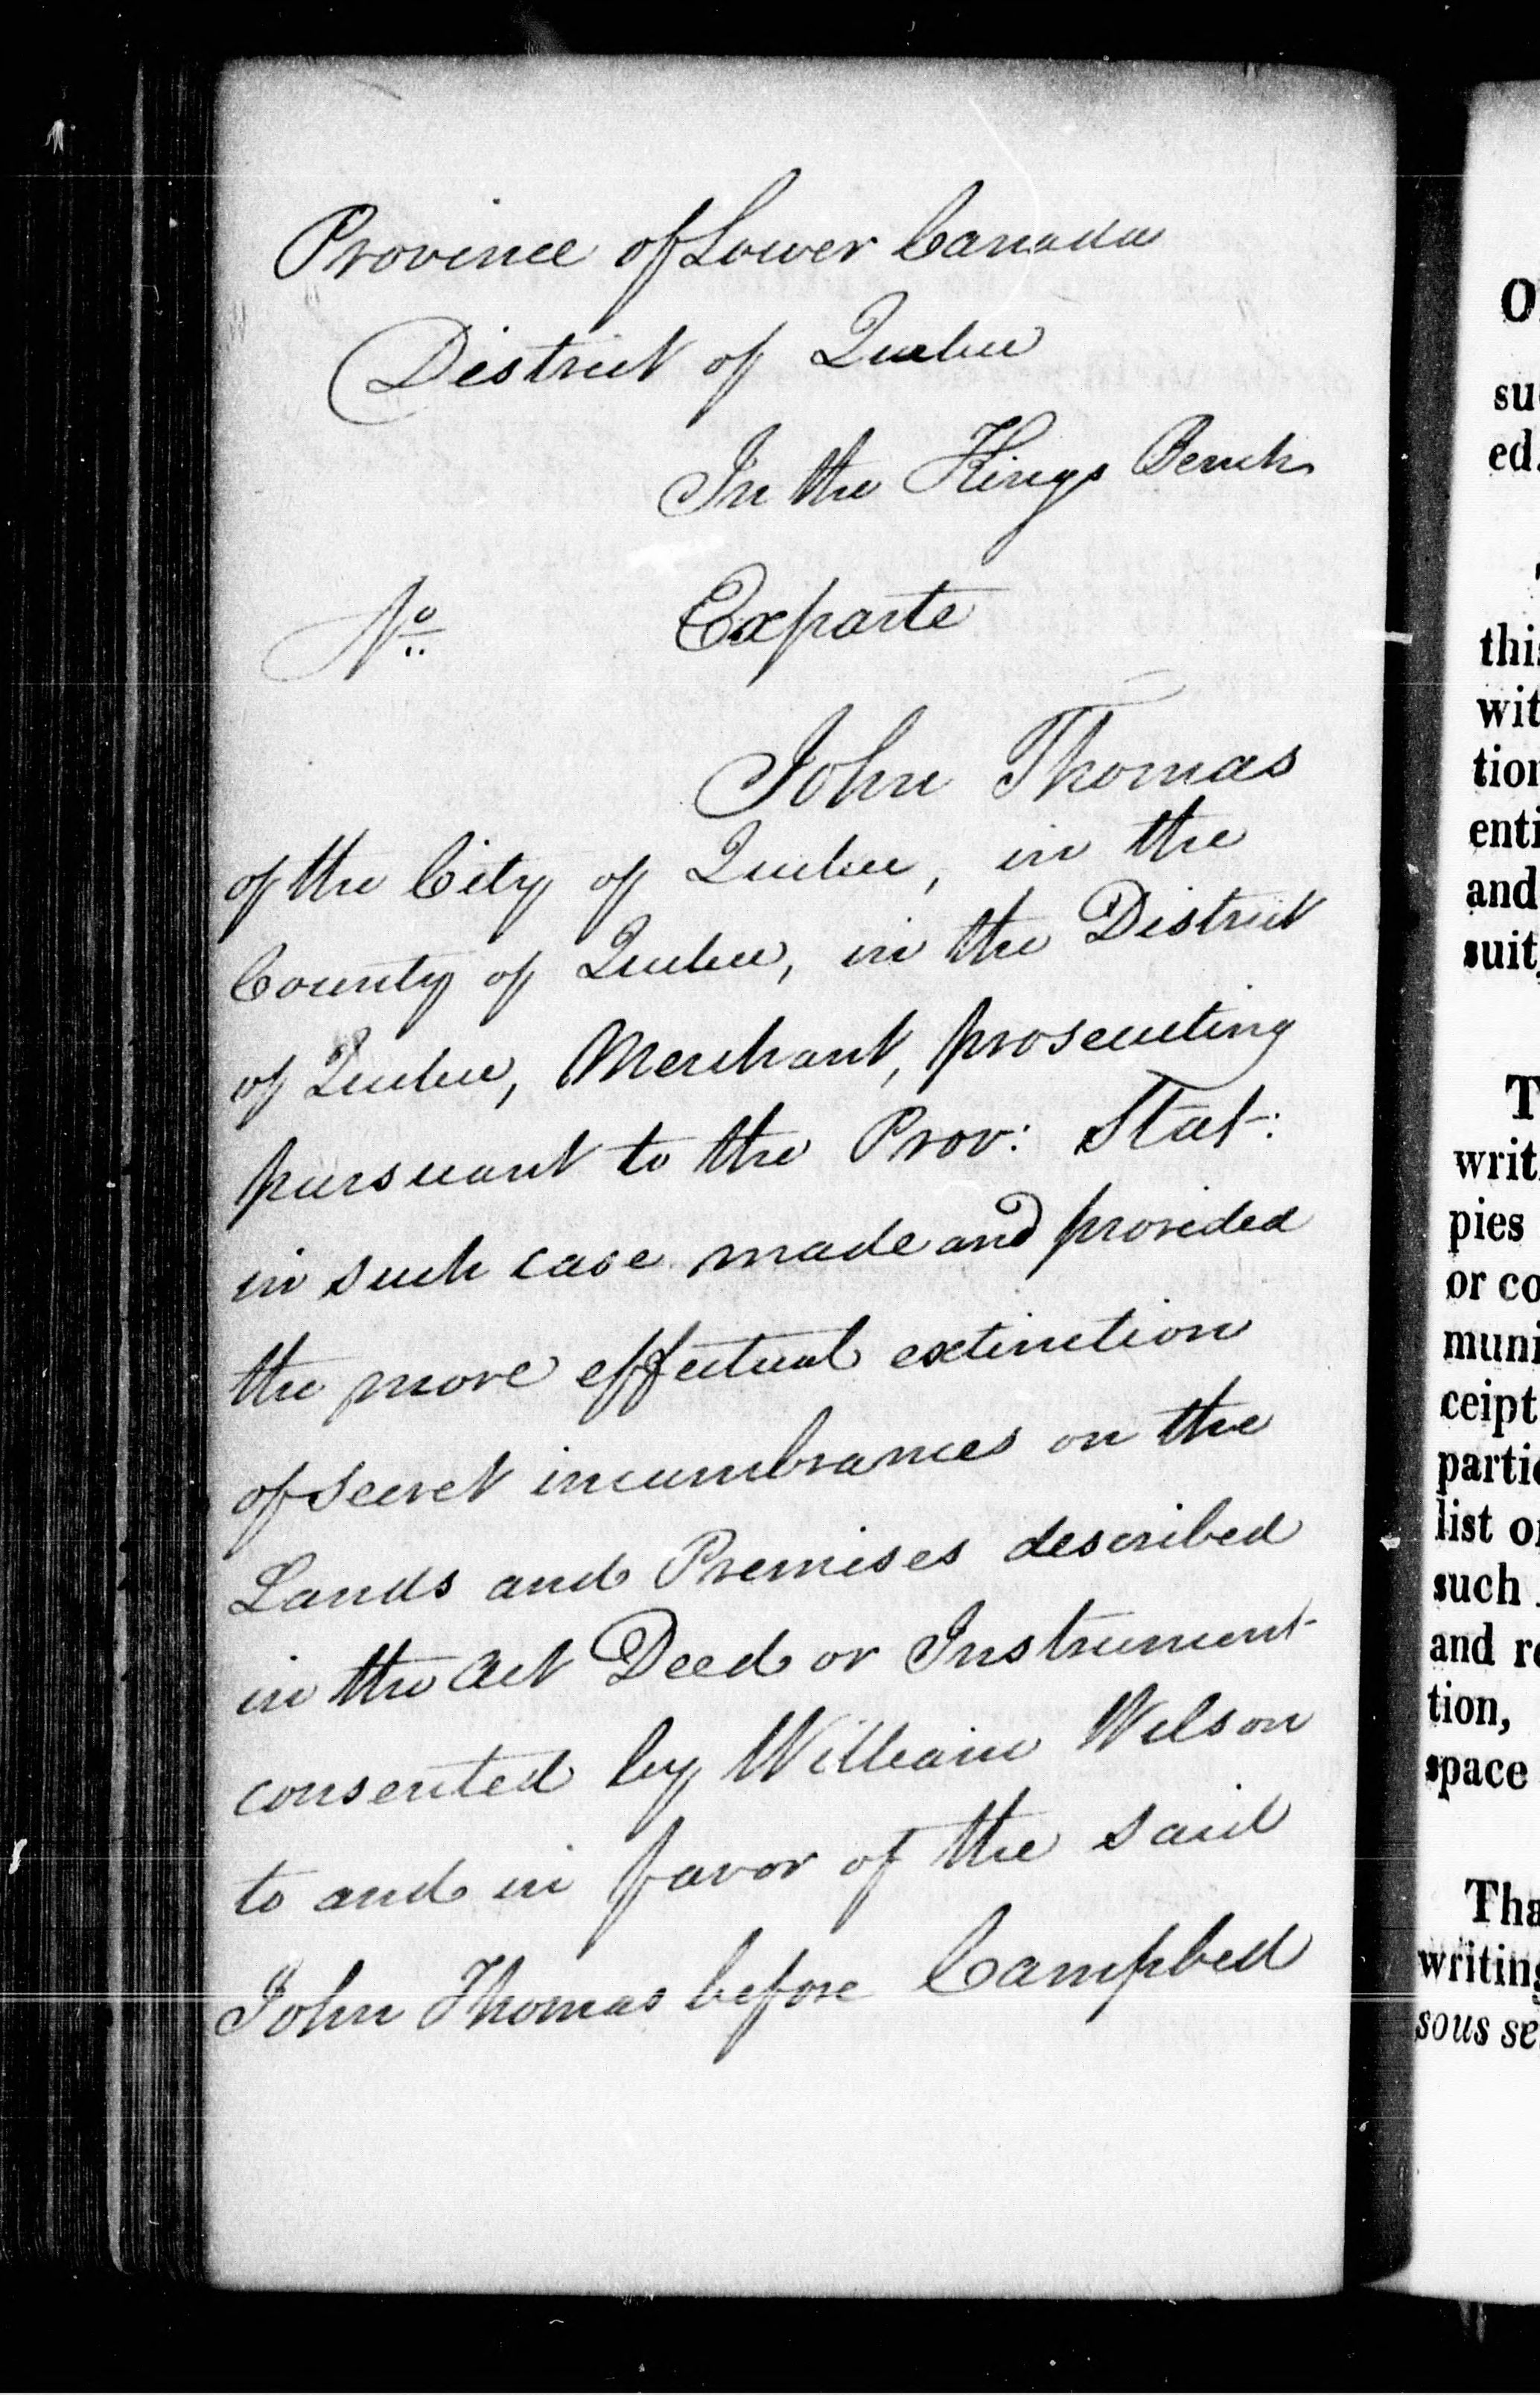 Province of Lower Canada
District of Quebec
In the Kings Bench
No. Exparte
John Thomas
of the City of Quebec, in the
County of Quebec, in the District
of Quebec, Merchant, prosecuting
pursuant to the Prov: Stat:
in such case made and provided
the more effectual extinction
of secret incumbrances on the
Lands and Premises described
in the Act Deed or Instrument
consented by William Wilson
to and in favor of the said
John Thomas before Campbell
su
ed.
this
wit
tion
enti
and
suit,
T
writ
pies
or co
muni
ceipt
parti
list o
such
and re
tion,
space
Tha
writing
sous se